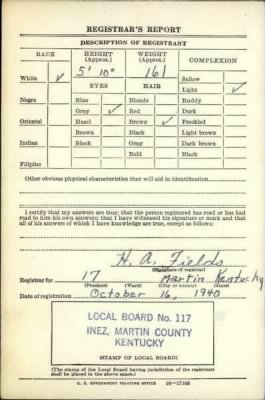 REGISTRAR'S REPORT
DESCRIPTION OF REGISTRANT
RACE HEIGHT (Approx.) WEIGHT (Approx.) COMPLEXION
5' 10" 161
White ✓ Sallow
EYES HAIR Light ✓
Negro Blue Blonde Ruddy
Gray ✓ Red Dark
Oriental Hazel Brown ✓ Freckled
Brown Black Light brown
Indian Black Gray Dark brown
Bald Black
Filipino
Other obvious physical characteristics that will aid in identification
I certify that my answers are true; that the person registered has read or has had
read to him his own answers; that I have witnessed his signature or mark and that
all of his answers of which I have knowledge are true, except as follows:
H. A. Fields
(Signature of registrar)
Registrar for 17 Martin Kentucky
(Precinct) (Ward) (City or county) (State)
Date of registration October 16, 1940
LOCAL BOARD No. 117
INEZ, MARTIN COUNTY
KENTUCKY
(STAMP OF LOCAL BOARD)
(The stamp of the Local Board having jurisdiction of the registrant
shall be placed in the above space.)
U. S. GOVERNMENT PRINTING OFFICE 16-17105